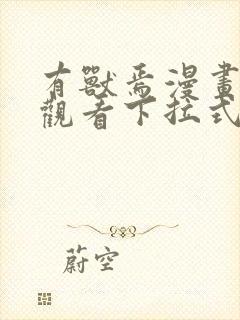 有獸焉漫畫
觀看下拉式
蔚空